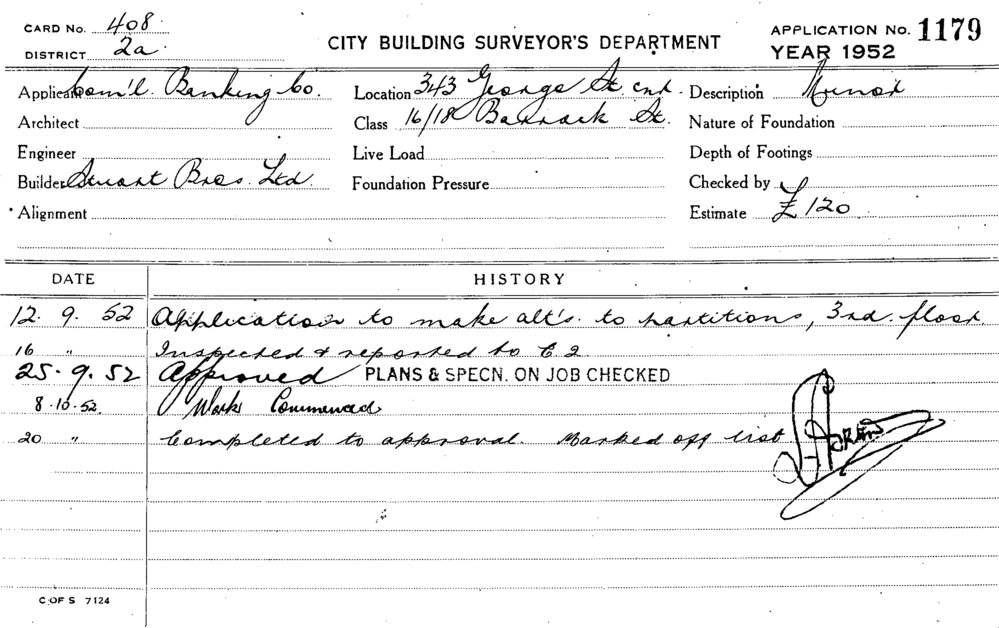 CARD No. 408
DISTRICT 2a.
CITY BUILDING SURVEYOR'S DEPARTMENT
APPLICATION No. 1179
YEAR 1952
Applicant Com'l. Banking Co.
Location 343 George St. cnr.
Description Minor
Architect
Class 16/18 Barrack St.
Nature of Foundation
Engineer
Live Load
Depth of Footings
Builder Stuart Bros. Ltd.
Foundation Pressure
Checked by
Alignment
Estimate £120
DATE HISTORY
12. 9. 52 Application to make alt's. to partitions, 3rd. floor.
16 " Inspected & reported to C 2
25. 9. 52 Approved PLANS & SPECN. ON JOB CHECKED
8.10.52. Work Commenced
20 " Completed to approval. Marked off list
C OF S 7124